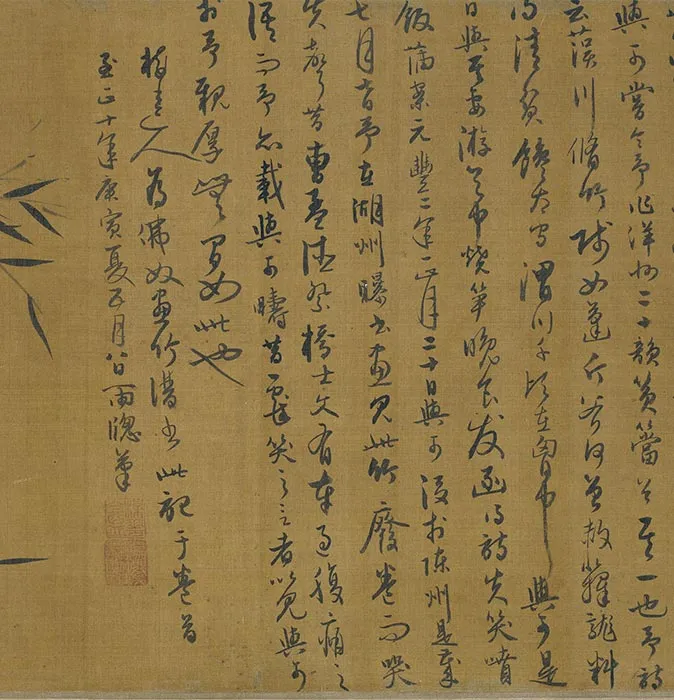 與可嘗令予作洋州二十韻篔簹谷其一也予詩
云漢川脩竹賤如蓬斤斧何曾赦籜龍料
得清貧饞太守渭川千頃在胸中與可是
日與其妻游谷中燒筍晚食發函得詩失笑噴
飯滿案元豐二年正月二十日與可沒於陳州是歲
七月七日予在湖州曝書畫見此竹廢卷而哭
失聲昔曹孟德祭橋公文有車過腹痛之
語而予亦載與可疇昔戲笑之言者以見與可
於予親厚無間如此也
梅道人為佛奴畫竹譜書此記于卷首
至正十年庚寅夏五月八日雨牕筆